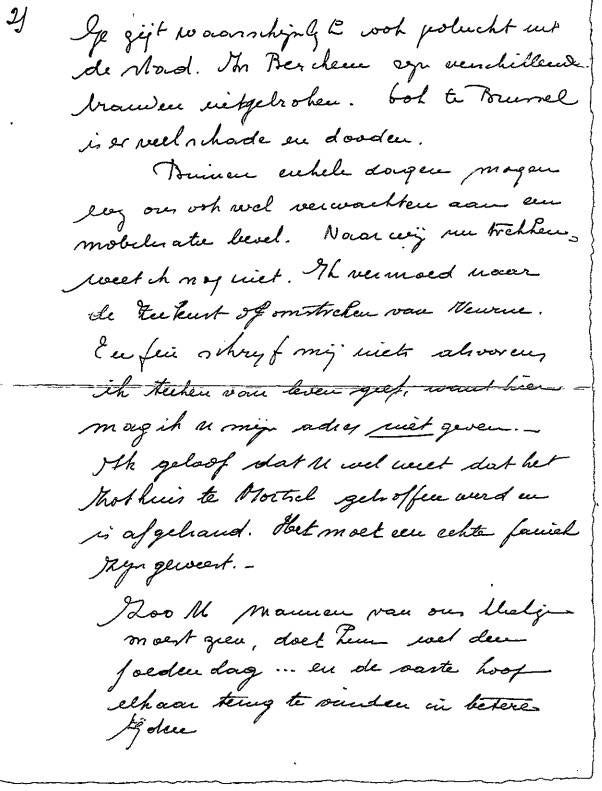 2)
Ge zijt waarschijnlijk ook gelucht uit
de stad. In Berchem zijn verschillende
branden uitgebroken. Ook te Brussel
is er veel schade en dooden.
Binnen enkele dagen mogen
wij ons ook wel verwachten aan een
mobilisatie bevel. Naar wij nu trekken,
weet ik nog niet. Ik vermoed naar
de Zeekust of omstreken van Veurne.
Enfin schrijf mij niets alvorens
ik teeken van leven geef, want hier
mag ik U mijn adres niet geven.-
Ik geloof dat U wel weet dat het
Zothuis te Mortsel getroffen werd en
is afgebrand. Het moet een echte paniek
zijn geweest.-
Zoo U mannen van ons
moest zien, doet hun wel den
goeden dag ... en de vaste hoop
elkaar terug te vinden in betere
tijden